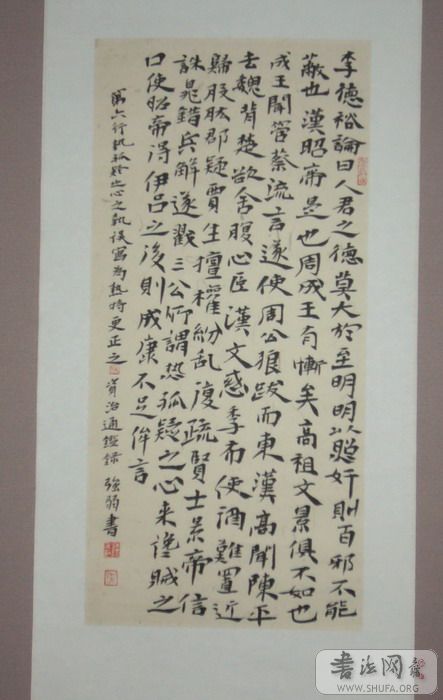 李德裕論曰人君之德莫大於至明明以照奸則百邪不能
蔽也漢昭帝是也周成王有慚矣高祖文景俱不如也
成王聞管蔡流言遂使周公狼跋而東漢高聞陳平
去魏背楚欲舍腹心臣漢文惑季布使酒難置近
歸股肱郡疑賈生擅權紛乱復疏賢士景帝信
誅晁錯兵解遂戮三公所謂热狐疑之心来讒賊之
口使昭帝得伊吕之後則成康不足侔言
第六行執狐疑之心之執誤寫為熱特更正之 資治通鑑錄 強弱書
書法网
WWW.SHUFA.ORG